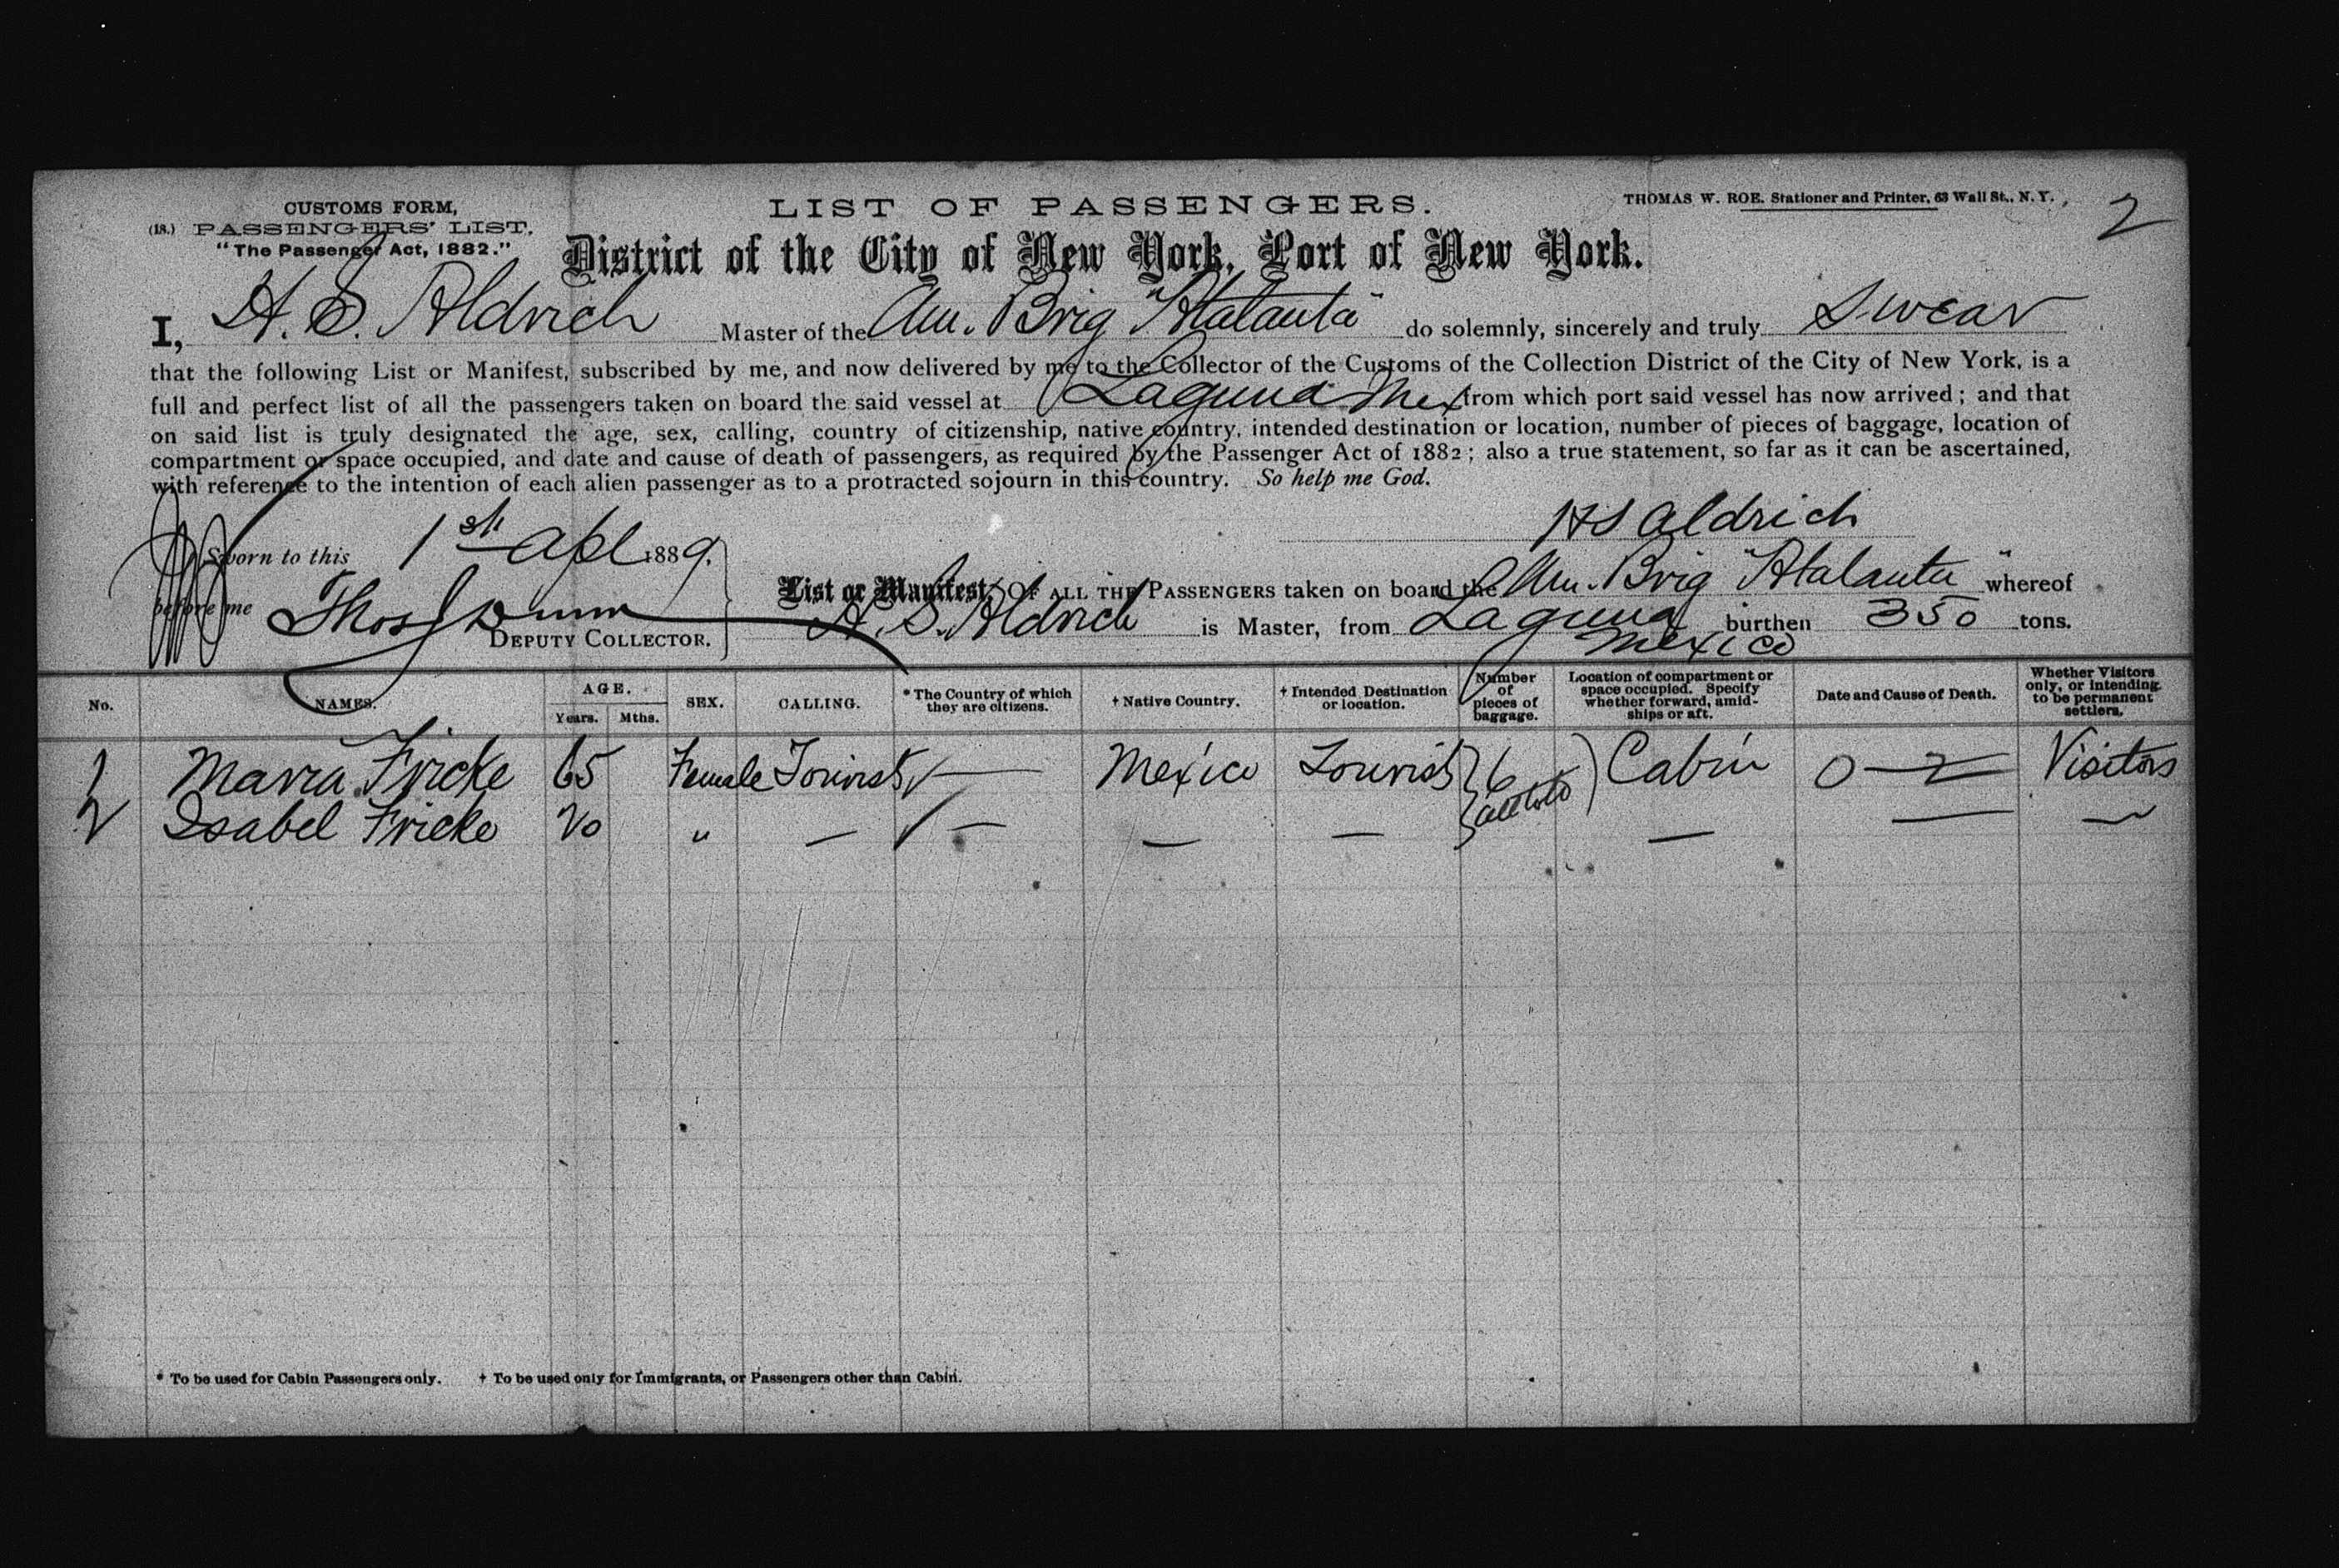 CUSTOMS FORM,
(18.) PASSENGERS' LIST.
"The Passenger Act, 1882."
LIST OF PASSENGERS.
THOMAS W. ROE. Stationer and Printer, 63 Wall St., N. Y.
2
District of the City of New York, Port of New York.
I, H. S. Aldrich Master of the Am. Brig "Atalanta" do solemnly, sincerely and truly Swear
that the following List or Manifest, subscribed by me, and now delivered by me to the Collector of the Customs of the Collection District of the City of New York, is a
full and perfect list of all the passengers taken on board the said vessel at Laguna Mex from which port said vessel has now arrived; and that
on said list is truly designated the age, sex, calling, country of citizenship, native country, intended destination or location, number of pieces of baggage, location of
compartment or space occupied, and date and cause of death of passengers, as required by the Passenger Act of 1882; also a true statement, so far as it can be ascertained,
with reference to the intention of each alien passenger as to a protracted sojourn in this country. So help me God.
HS Aldrich
Sworn to this 1st Apl 1889.
before me Thos Dunn
DEPUTY COLLECTOR.
List or Manifest, OF ALL THE PASSENGERS taken on board the Am. Brig "Atalanta" whereof
H. S. Aldrich is Master, from Laguna Mexico burthen 350 tons.
No. NAMES. AGE. Years. Mths. SEX. CALLING. * The Country of which they are citizens. † Native Country. † Intended Destination or location. Number of pieces of baggage. Location of compartment or space occupied. Specify whether forward, amidships or aft. Date and Cause of Death. Whether Visitors only, or intending to be permanent settlers.
1 Maria Fricke 65 Female Tourist ✓— Mexico Tourist 6 Cabin 0 — Visitors
2 Isabel Fricke 20 " — ✓— — — — — —
* To be used for Cabin Passengers only. † To be used only for Immigrants, or Passengers other than Cabin.